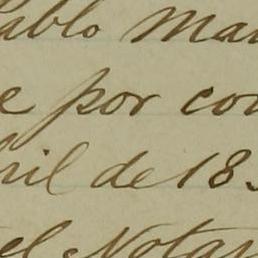 ablo Mar
e por con
bril de 18
el Notar